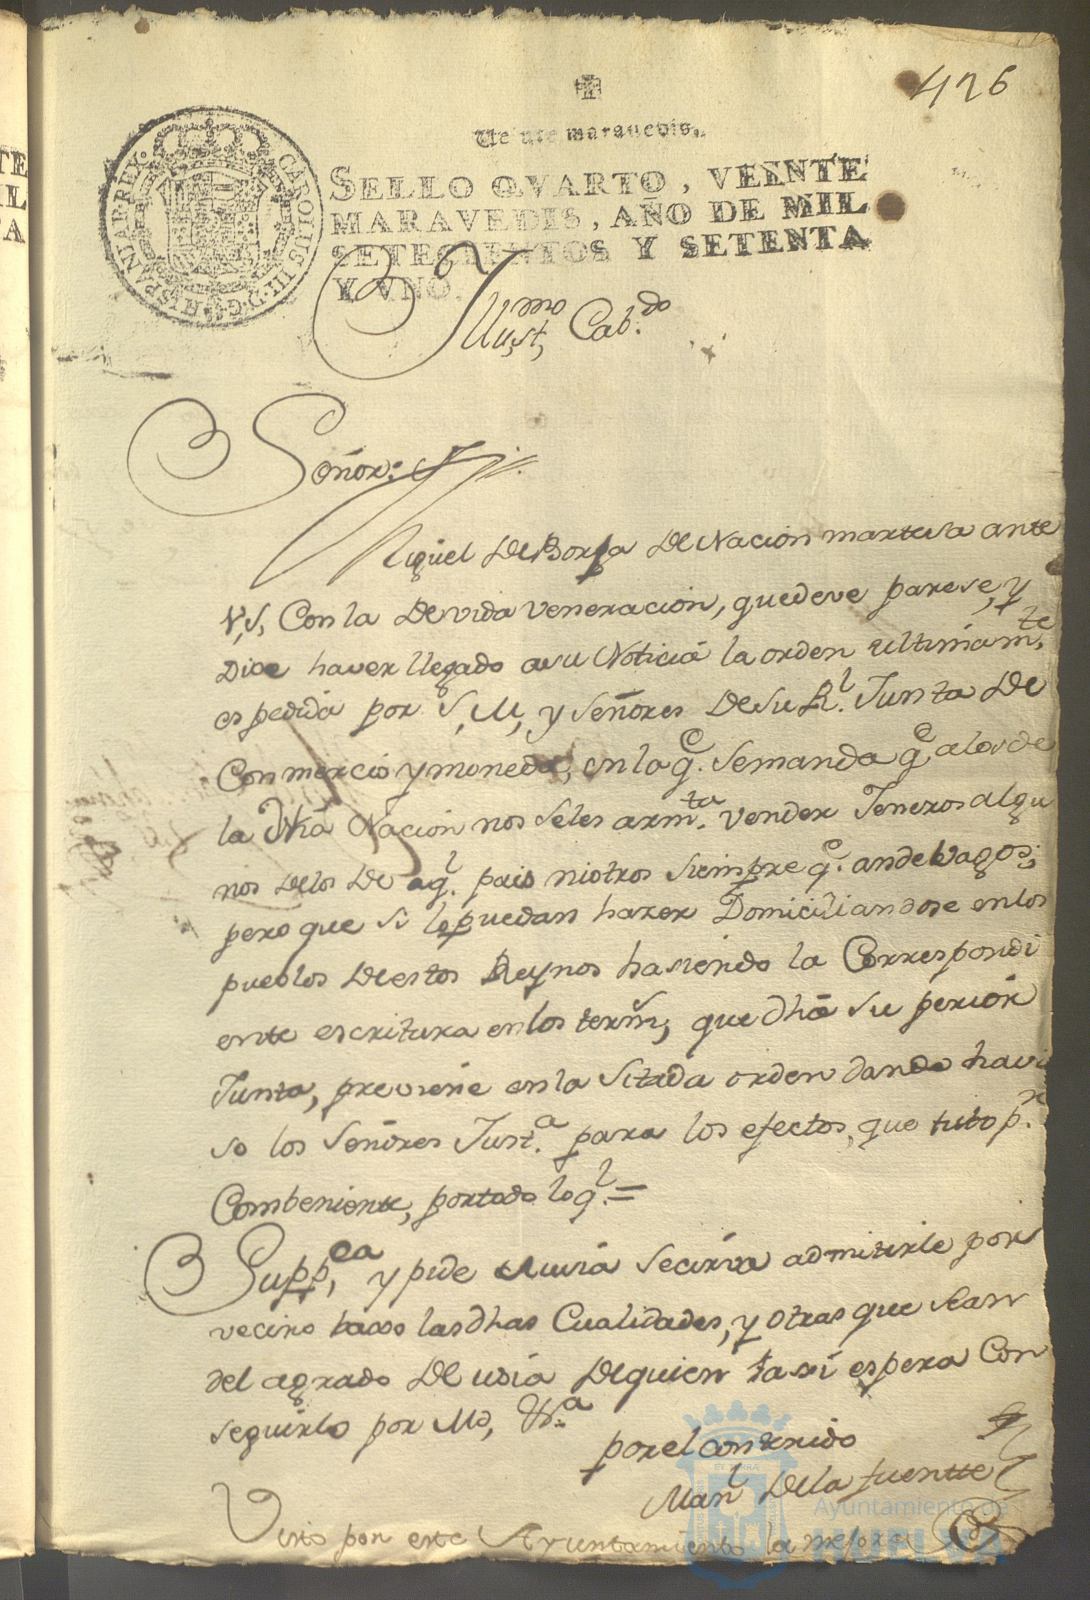 426
Veinte maravedis.
SELLO QVARTO, VEINTE
MARAVEDIS, AÑO DE MIL
SETECIENTOS Y SETENTA
Y VNO.
CAROLUS III D G HISPANIAR REX
Yllustmo Cabdo
Señor:
Miguel De Borja De Nacion martesa ante
V,S, Con la Devida veneracion, quedeve parese, y
Dice haver llegado asu Noticia la orden ultimamte
espedida por S, M, y señores De Su Rl Junta De
Conmercio y moneda, en la qe. Semanda qe alos de
la Dha Nacion nos seles armta. vender Jeneros algu
nos delos De aql. pais niotros siempre qe. ande bagos;
pero que si lo puedan hazer Domiciliandose en los
pueblos De estos Reynos hasiendo la Correspondi
ente escritura en los terms, que dha su perior
Junta, previene en la Sitada orden dando havi
so los señores Justa. para los efectos, que tubo pr.
Combeniente, portodo lo ql. =
Suppca, y pide a usia se cirva admitirle por
vecino baxo las dhas Cualidades, y otras que sean
del agrado De usia De quien asi espera Con
seguirlo por Md, &a
por el contenido
Manl De la fuentte
Visto por este Ayuntamiento la
Ayuntamiento de
HUELVA